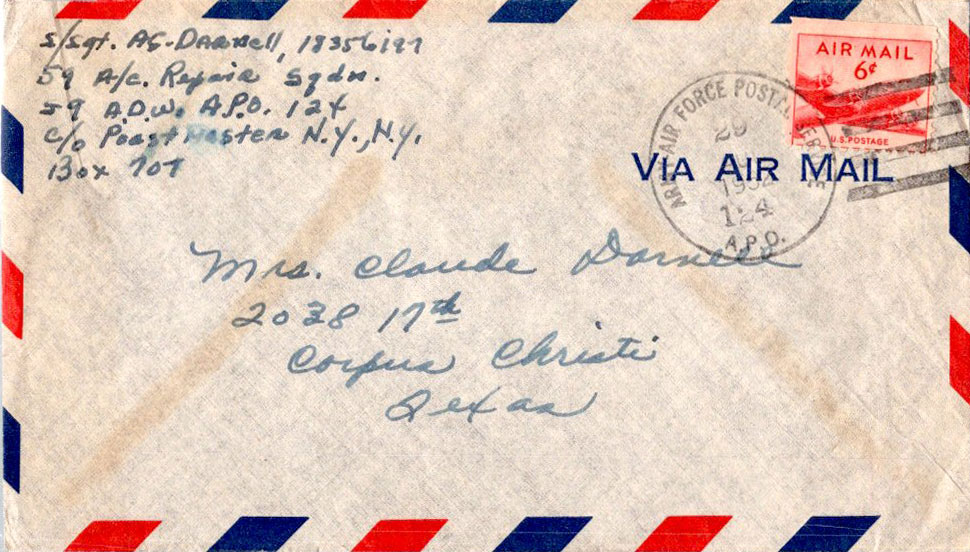 S/Sgt. AG-Darnell, 18356197
59 A/c. Repair Sqdn.
59 A.D.W. A.P.O. 124
c/o Poast Master N.Y., N.Y.
Box 707
AIR MAIL
6¢
U.S. POSTAGE
AIR FORCE POSTAL SERVICE
29
1952
124
A.P.O.
VIA AIR MAIL
Mrs. Claude Darnell
2038 17th
Corpus Christi
Texas